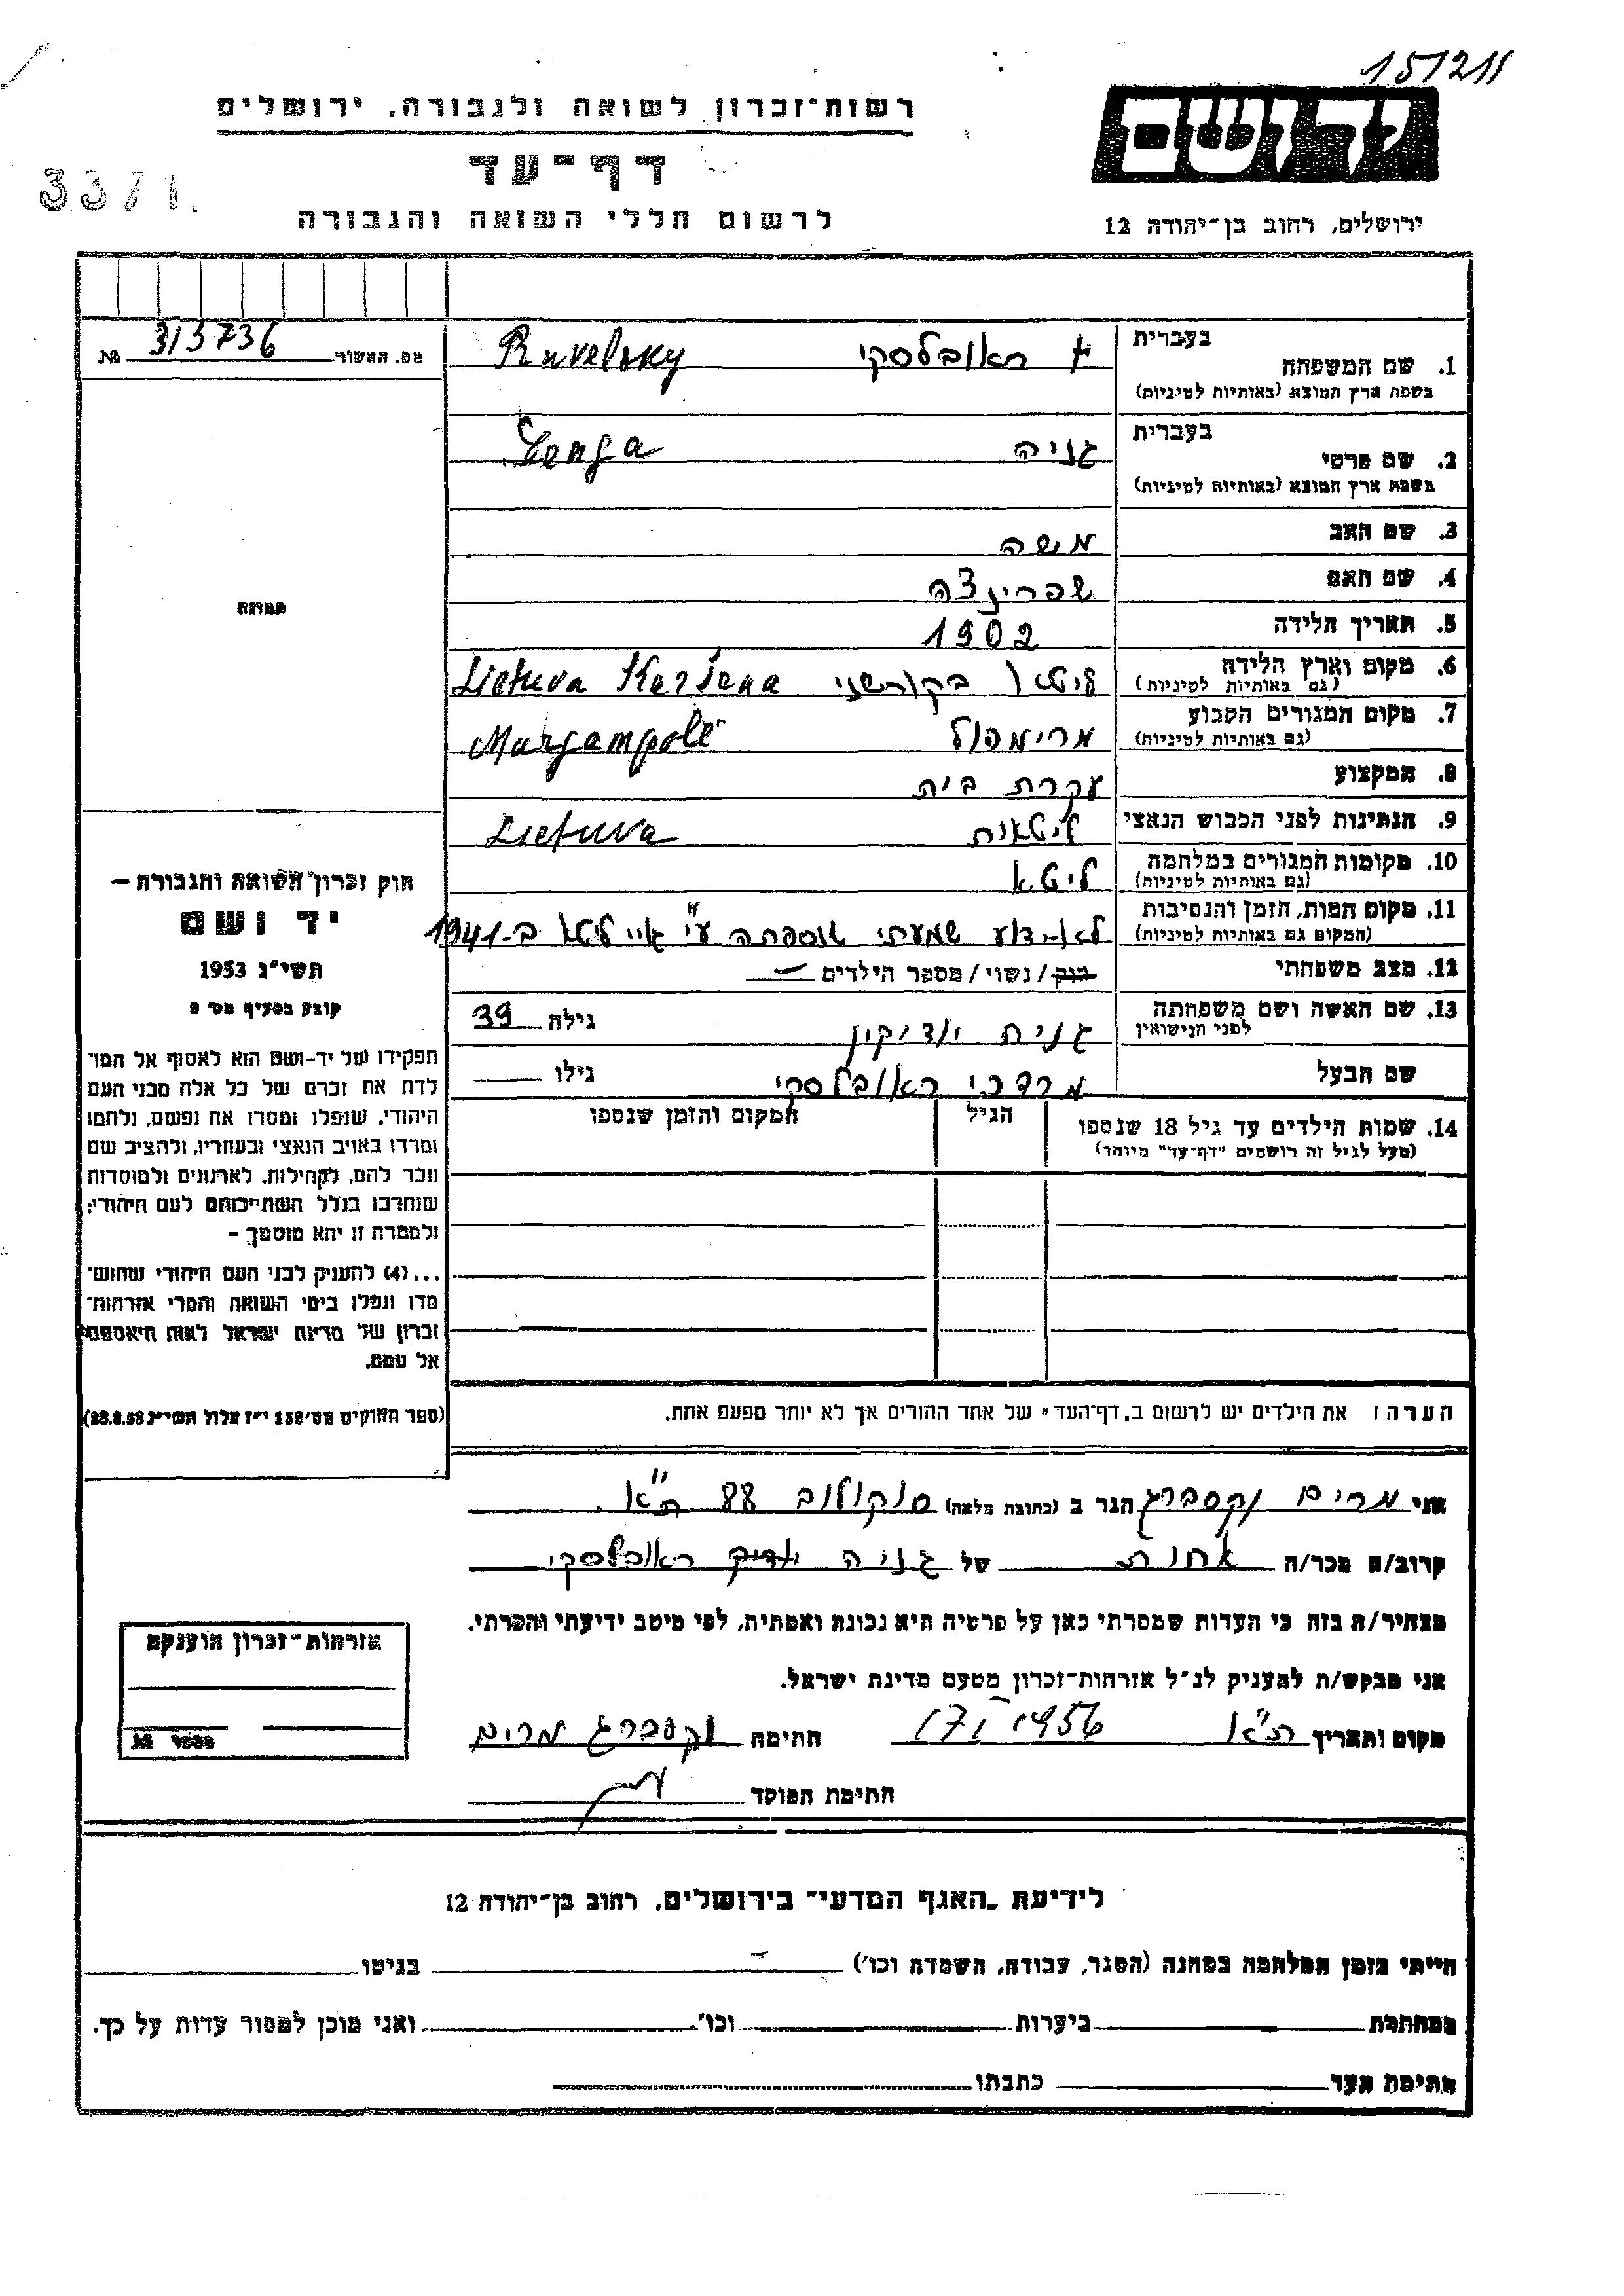 151211
יד ושם
רשות-זכרון לשואה ולגבורה, ירושלים
דף-עד
3371
לרשום חללי השואה והגבורה
ירושלים, רחוב בן-יהודה 12
מס. האשור 313736 №
תמונה
חוק זכרון השואה והגבורה –
יד ושם
תשי"ג 1953
קובע בסעיף מס' 2
תפקידו של יד-ושם הוא לאסוף אל המו־
לדת את זכרם של כל אלה מבני העם
היהודי, שנפלו ומסרו את נפשם, נלחמו
ומרדו באויב הנאצי ובעוזריו, ולהציב שם
וזכר להם, לקהילות, לארגונים ולמוסדות
שנחרבו בגלל השתייכותם לעם היהודי;
ולמטרה זו יהא מוסמך –
...(4) להעניק לבני העם היהודי שהוש־
מדו ונפלו בימי השואה והמרי אזרחות־
זכרון של מדינת ישראל לאות היאספם
אל עמם.
(ספר החוקים מס' 132 י"ז אלול תשי"ג 28.8.53)
בעברית
1. שם המשפחה ראובלסקי Ruvelsky
בשפת ארץ המוצא (באותיות לטיניות)
בעברית
2. שם פרטי גניה Zenja
בשפת ארץ המוצא (באותיות לטיניות)
3. שם האב משה
4. שם האם שפרינצה
5. תאריך הלידה 1902
6. מקום וארץ הלידה ליטא Lietuva
(גם באותיות לטיניות)
7. מקום המגורים הקבוע מרימפול Marjampolė
(גם באותיות לטיניות)
8. המקצוע עקרת בית
9. הנתינות לפני הכבוש הנאצי ליטאית Lietuva
10. מקומות המגורים במלחמה ליטא
(גם באותיות לטיניות)
11. מקום המות, הזמן והנסיבות לא ידוע שמעתי שנספתה ע"י ליטא ב-1941
(המקום גם באותיות לטיניות)
12. מצב משפחתי רווק / נשוי / מספר הילדים –
13. שם האשה ושם משפחתה גנית יודיקין גילה 39
לפני הנישואין
שם הבעל מרדכי ראובלסקי גילו
14. שמות הילדים עד גיל 18 שנספו הגיל המקום והזמן שנספו
(מעל לגיל זה רושמים "דף-עד" מיוחד)
הערה: את הילדים יש לרשום ב"דף-העד" של אחד ההורים אך לא יותר מפעם אחת.
אני מרים וקסברג הגר ב (כתובת מלאה) סוקולוב 88 ת"א.
קרוב/ה מכר/ה אחות של גניה יודיק ראובלסקי
מצהיר/ה בזה כי העדות שמסרתי כאן על פרטיה היא נכונה ואמתית, לפי מיטב ידיעתי והכרתי.
אני מבקש/ת להעניק לנ"ל אזרחות-זכרון מטעם מדינת ישראל.
מקום ותאריך ת"א 17/I 1956 חתימה וקסברג מרים
חתימת המוסד
אזרחות-זכרון הוענקה
מספר №
לידיעת "האגף המדעי" בירושלים, רחוב בן-יהודה 12
הייתי בזמן המלחמה במחנה (הסגר, עבודה, השמדה וכו') – בגיטו
במחתרת ביערות וכו'. ואני מוכן למסור עדות על כך.
חתימת העד כתבתו